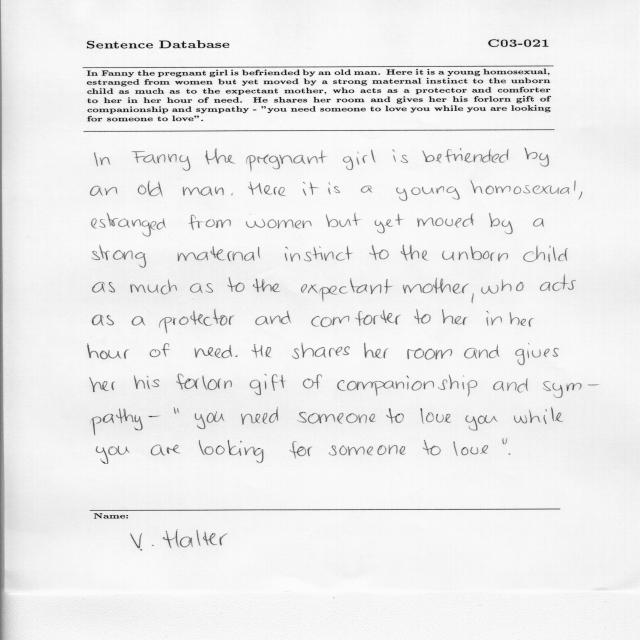 Sentence Database C03-021
In Fanny the pregnant girl is befriended by an old man. Here it is a young homosexual,
estranged from women but yet moved by a strong maternal instinct to the unborn
child as much as to the expectant mother, who acts as a protector and comforter
to her in her hour of need. He shares her room and gives her his forlorn gift of
companionship and sympathy - "you need someone to love you while you are looking
for someone to love".
In Fanny the pregnant girl is befriended by
an old man. Here it is a young homosexual,
estranged from women but yet moved by a
strong maternal instinct to the unborn child
as much as to the expectant mother, who acts
as a protector and comforter to her in her
hour of need. He shares her room and gives
her his forlorn gift of companionship and sym-
pathy - "you need someone to love you while
you are looking for someone to love".
Name:
V. Halter